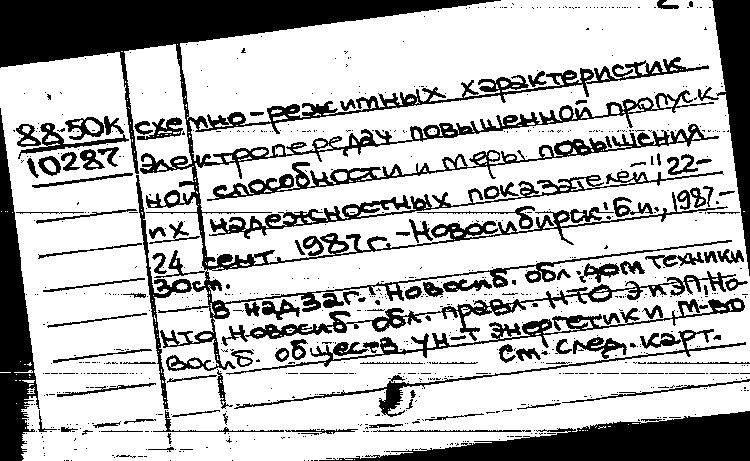 2.
88-50К схемно-режимных характеристик
10287 электропередач повышенной пропуск-
ной способности и меры повышения
их надежностных показателей", 22-
24 сент. 1987г. - Новосибирск: Б.и., 1987.-
30ст.
В надзаг.: Новосиб. обл. дом техники
НТО, Новосиб. обл. правл. НТО ЭиЭП, Но-
восиб. обществ. ун-т энергетики, М-во
Ст. след. карт.